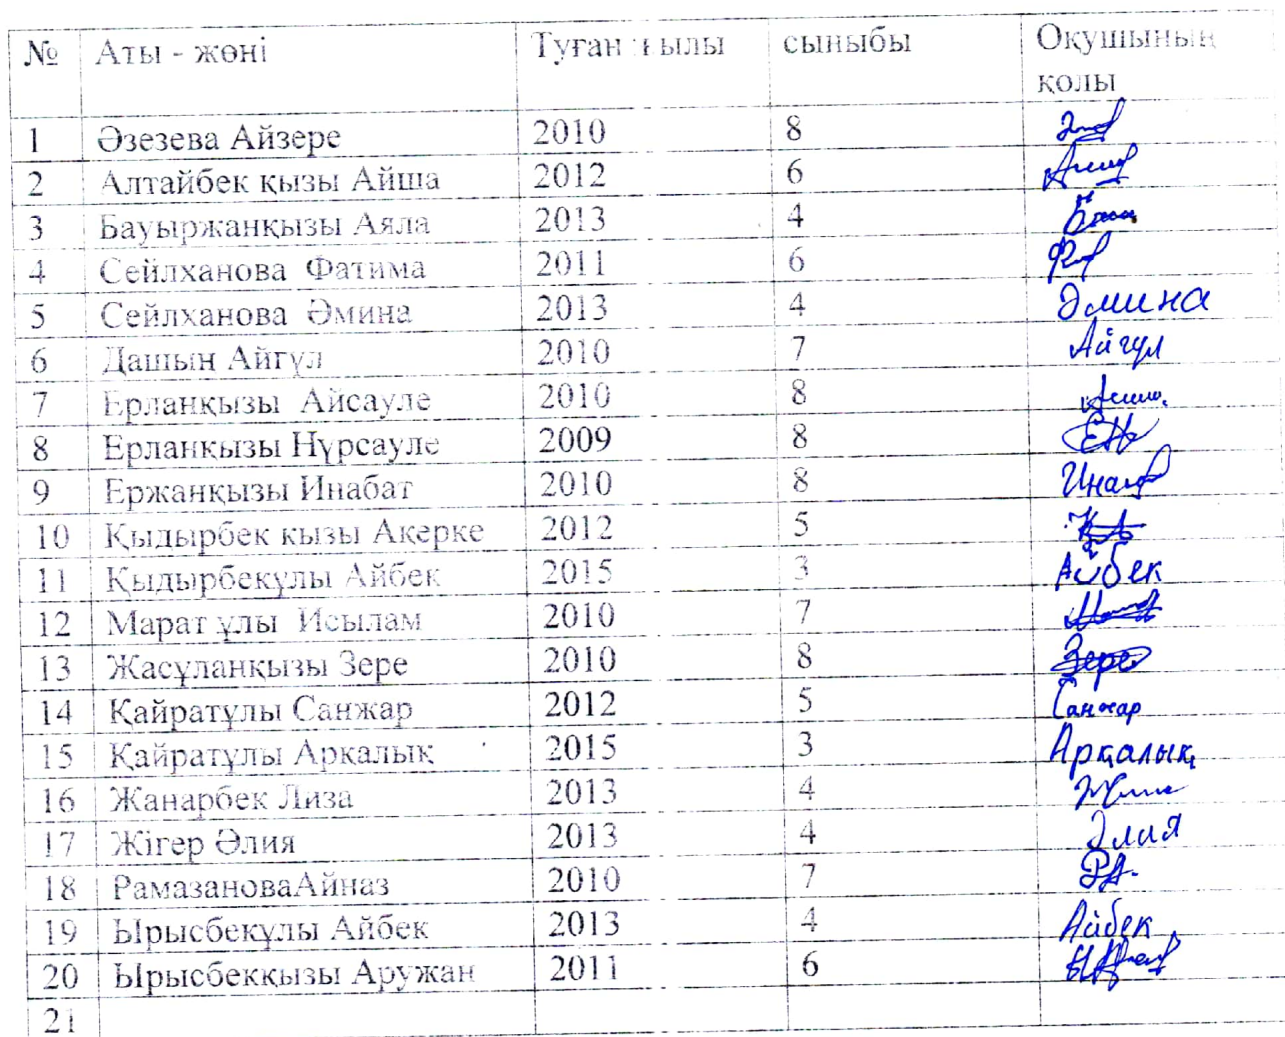 № Аты - жөні Туған жылы сыныбы Оқушының қолы
1 Әзезева Айзере 2010 8
2 Алтайбек қызы Айша 2012 6
3 Бауыржанқызы Аяла 2013 4
4 Сейлханова Фатима 2011 6
5 Сейлханова Әмина 2013 4 Әмина
6 Дашын Айгүл 2010 7 Айгүл
7 Ерланқызы Айсауле 2010 8
8 Ерланқызы Нұрсауле 2009 8 ЕН
9 Ержанқызы Инабат 2010 8
10 Қыдырбек кызы Ақерке 2012 5
11 Қыдырбекұлы Айбек 2015 3 Айбек
12 Марат ұлы Исылам 2010 7
13 Жасұланқызы Зере 2010 8 Зере
14 Қайратұлы Санжар 2012 5 Санжар
15 Қайратұлы Арқалық 2015 3 Арқалық
16 Жанарбек Лиза 2013 4
17 Жігер Әлия 2013 4 Әлия
18 РамазановаАйназ 2010 7 РА.
19 Ырысбекұлы Айбек 2013 4 Айбек
20 Ырысбекқызы Аружан 2011 6
21